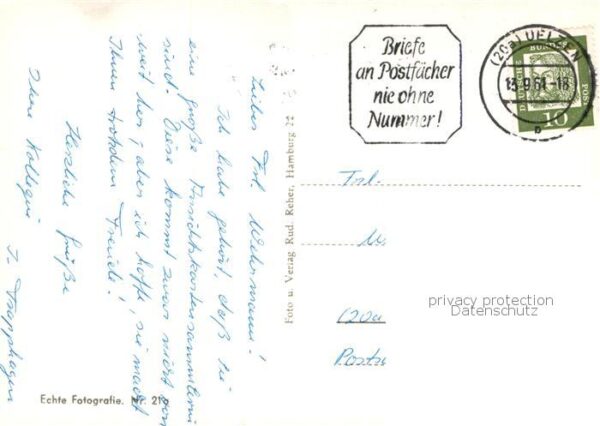 Liebes Frl. Wehrmann!
Ich habe gehört, daß sie
eine große Ansichtskartensammlerin
sind. Diese kommt zwar nicht von
weit her, aber ich hoffe, sie macht
Ihnen trotzdem Freude!
Herzliche Grüße
Ihre Kollegin
Foto u. Verlag Rud. Reher, Hamburg 22
Echte Fotografie. Nr. 219
Briefe
an Postfächer
nie ohne
Nummer!
(20a) UELZEN
13.9.61-18
DEUTSCHE BUNDESPOST
10
Frl.
120a
privacy protection
Datenschutz